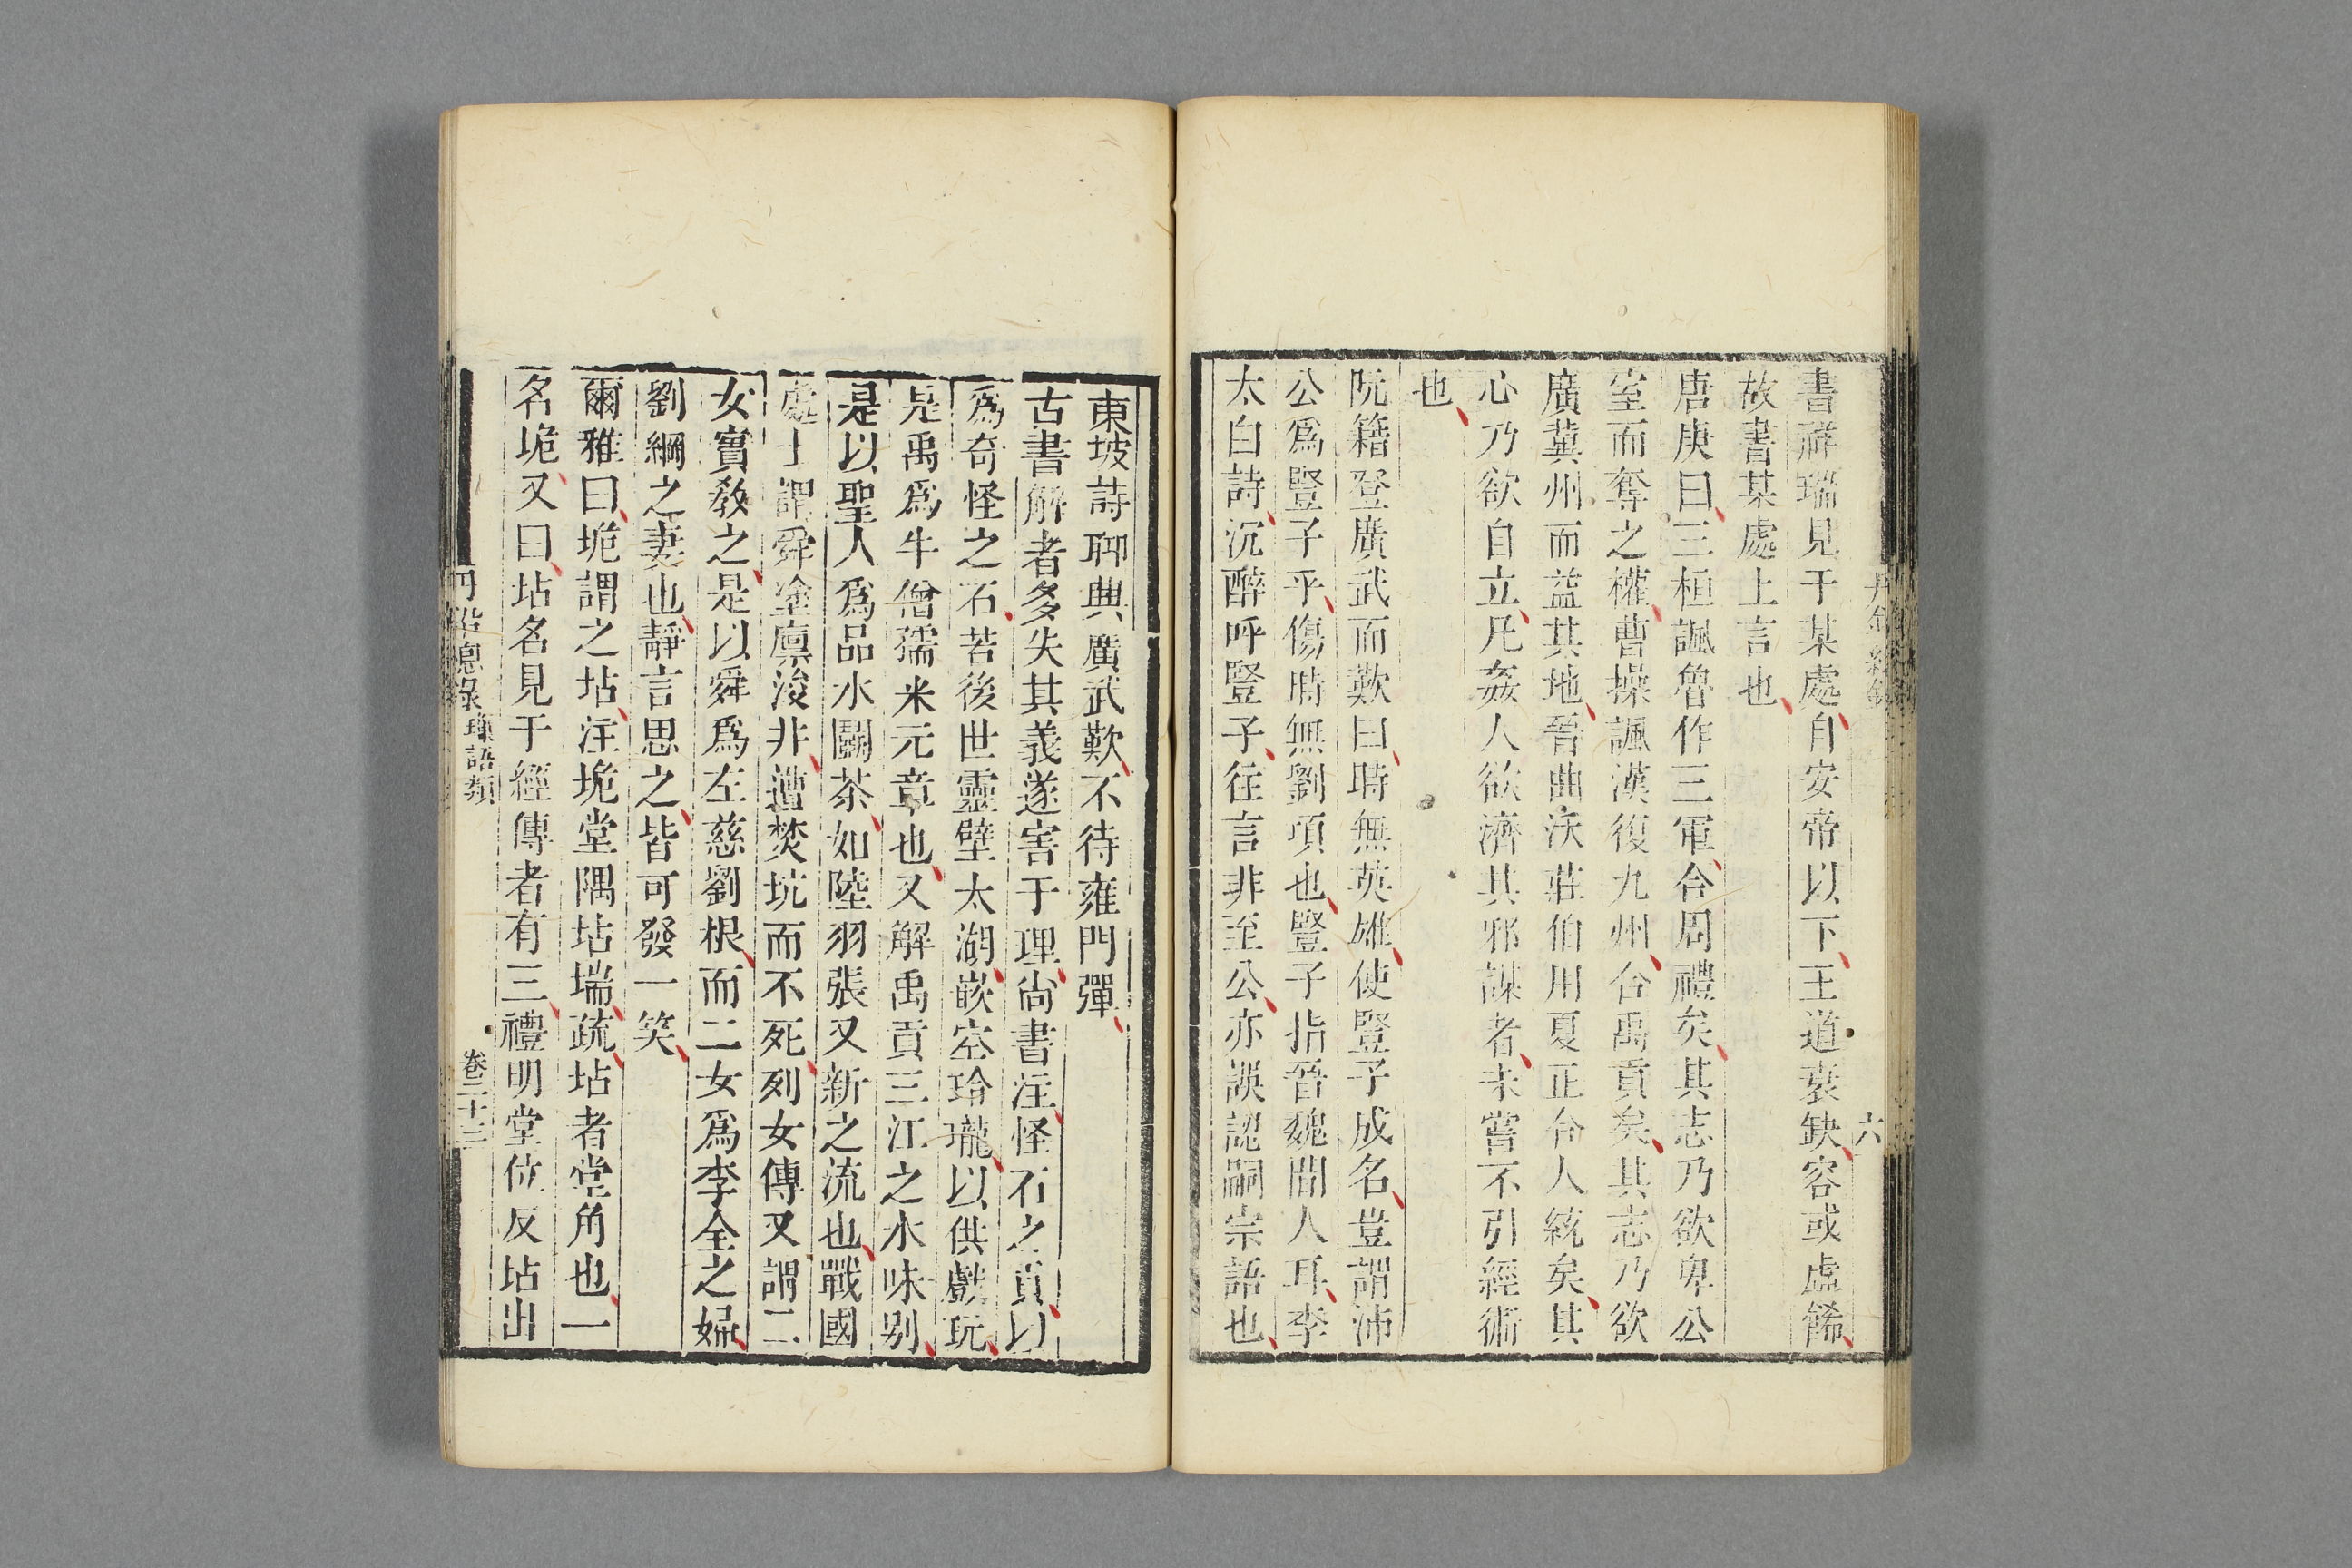 書祥瑞見于某處自安帝以下王道衰缺容或虛餙
故書某處上言也
唐庚曰三桓諷魯作三軍合周禮矣其志乃欲卑公
室而奪之權曹操諷漢復九州合禹貢矣其志乃欲
廣冀州而益其地吾曲沃莊伯用夏正合人統矣其
心乃欲自立凡姦人欲濟其邪謀者未嘗不引經術
也
阮籍登廣武而歎曰時無英雄使豎子成名豈謂沛
公爲豎子乎傷時無劉項也豎子指晉魏間人耳李
太白詩沉醉呼豎子狂言非至公亦誤認嗣宗語也
六
東坡詩聊興廣武歎不待雍門彈
古書解者多失其義遂害于理尙書注怪石之貢以
爲奇怪之石若後世靈壁太湖嵌空玲瓏以供戲玩
是禹爲牛僧孺米元章也又解禹貢三江之水味别
是以聖人爲品水鬬茶如陸羽張又新之流也戰國
處士謂舜塗廪浚井遭焚坑而不死列女傳又謂二
女實敎之是以舜爲左慈劉根而二女爲李全之婦
劉綱之妻也靜言思之皆可發一笑
爾雅曰垝謂之坫注垝堂隅坫㙐疏坫者堂角也一
名垝又曰坫名見于經傳者有三禮明堂位反坫出
丹鉛總錄 瑣語類 卷二十三